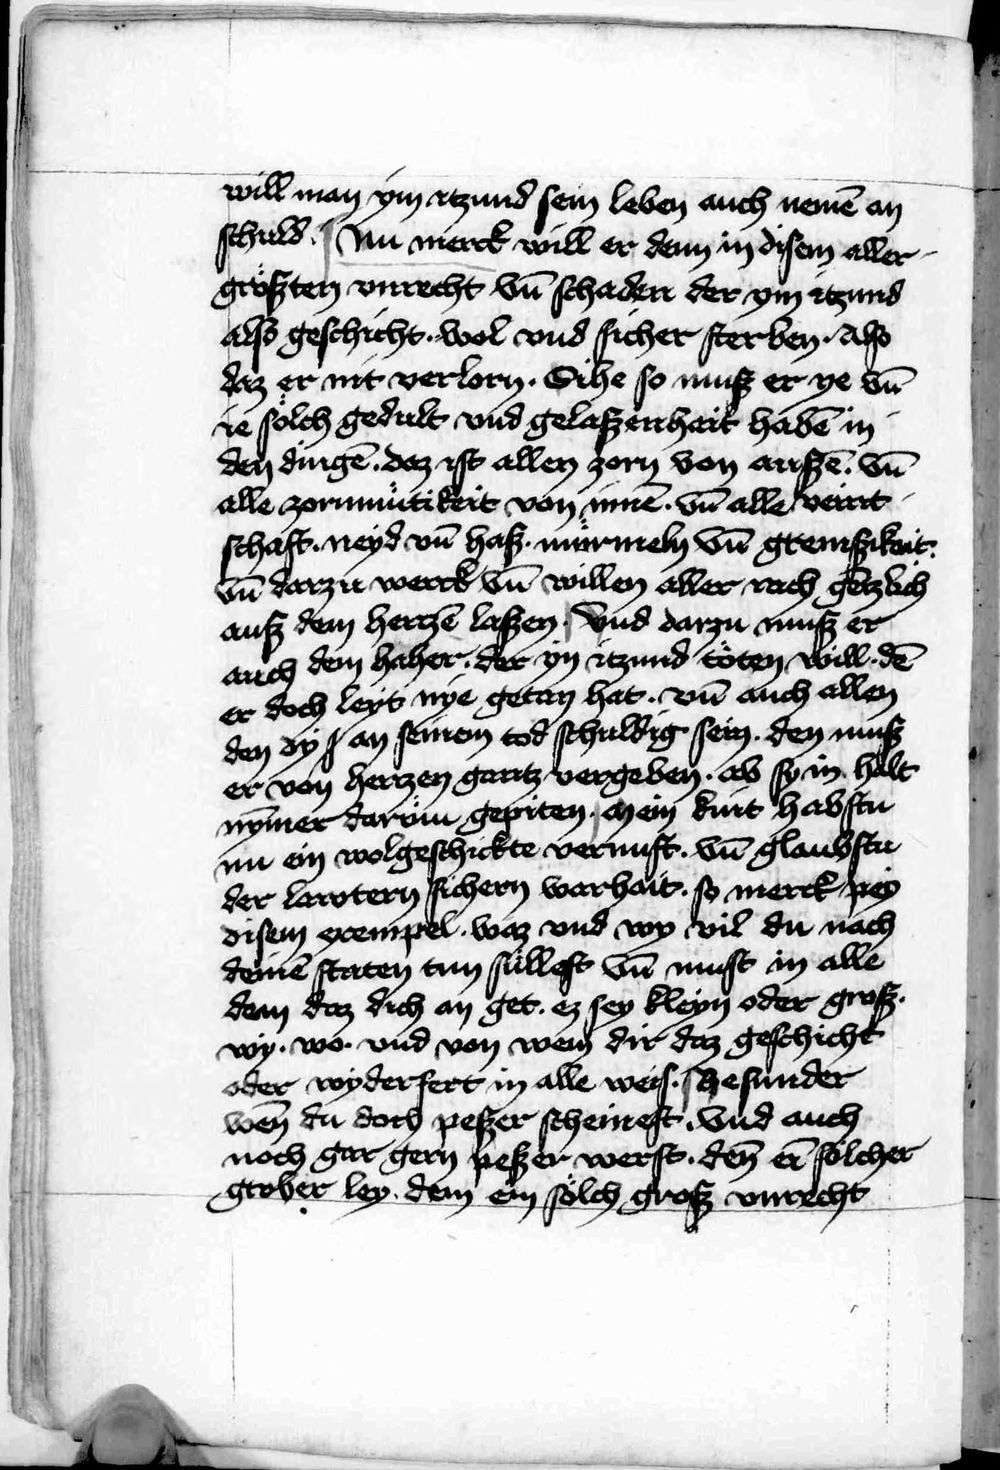 will man ym itzund sein leben auch nemē an
schuld. Nu merck will er denn in disem aller
größten vnrecht vn̄ schaden der ym itzund
also geschicht. wol vnd sicher sterben. Also
daz er nit verlorn. Sihe so muß er ye vn̄
ie sölch gedult vnd gelaßenhait habē in
den dingē. daz ist allen zorn von aussē. vn̄
alle zornmütikeit von innē. vn̄ alle veint
schaft. neyd vn̄ haß. mürmeln vn̄ gremßikeit.
vn̄ darzu werck vn̄ willen aller rach gētzlich
auß dem hertzē laßen. Vnd darzu muß er
auch dem haher. der yn itzund töten will. dē
er doch leyt nye getan hat. vn̄ auch allen
den dy an seinem tod schuldig sein. den muß
er von hertzen gantz vergeben. ob sy in halt
nȳmer darüm gepiten. Mein kint habstu
nu ein wolgeschickte vernuft. vn̄ glaubstu
der lawtern sichern warhait. so merck pey
disem exempel. waz vnd wy vil du nach
deinē staten tun süllest vn̄ must in alle
dem daz dich an get. ez sey kleyn oder groß.
wy. wo. vnd von wem dir daz geschicht
oder wyderfert in alle weis. Besunder
wen̄ du doch peßer scheinest. Vnd auch
noch gar gern peßer werst. den̄ ei sölcher
grober ley. dem ein sölch groß vnrecht